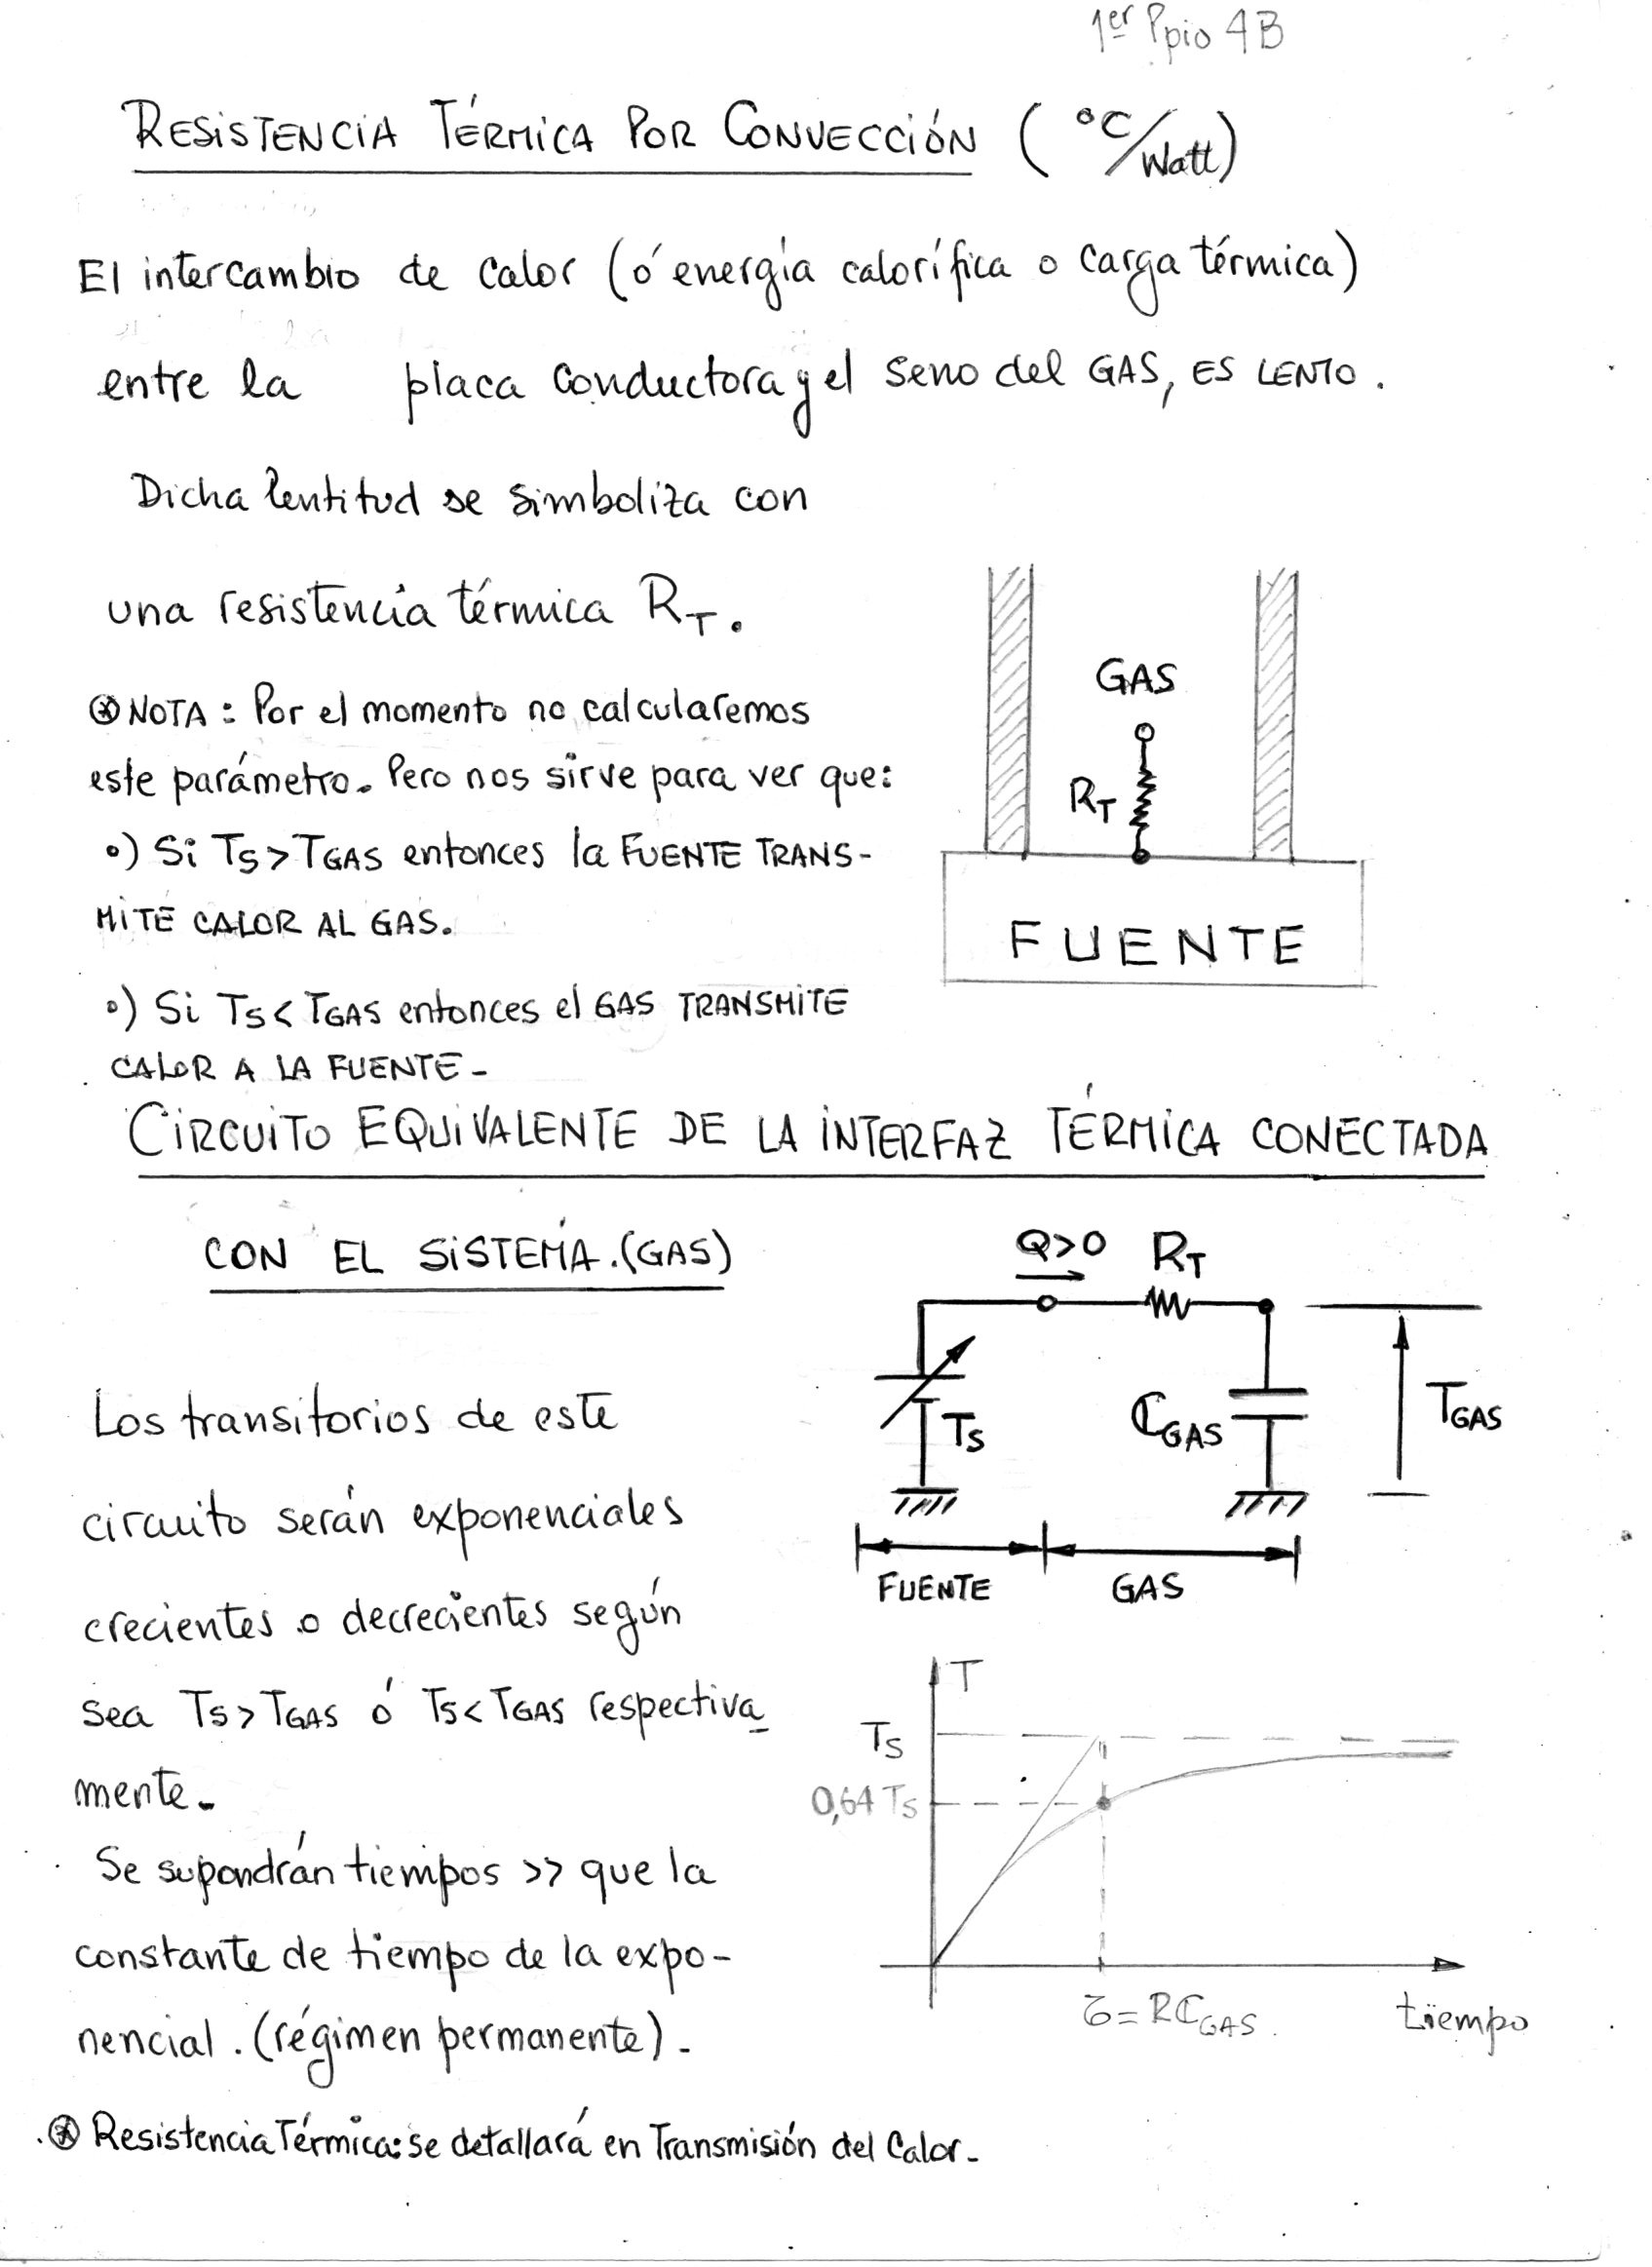 1er Ppio 4B
RESiSTENCiA TÉRMiCA POR CONVECCiÓN ( °C/Watt)
El intercambio de calor (ó energía calorífica o carga térmica)
entre la placa conductora y el seno del GAS, ES LENTO.
Dicha lentitud se simboliza con
una resistencia térmica RT.
⊛ NOTA: Por el momento no calcularemos
este parámetro. Pero nos sirve para ver que:
°) Si TS > TGAS entonces la FUENTE TRANS-
MiTE CALOR AL GAS.
°) Si TS < TGAS entonces el GAS TRANSMiTE
CALOR A LA FUENTE -
GAS
RT
FUENTE
CiRCUiTO EQUiVALENTE DE LA iNTERFAZ TÉRMiCA CONECTADA
CON EL SiSTEMA. (GAS)
Q>0 RT
TS
CGAS
TGAS
FUENTE GAS
Los transitorios de este
circuito serán exponenciales
crecientes o decrecientes según
sea TS > TGAS ó TS < TGAS respectiva_
mente.
Se supondrán tiempos >> que la
constante de tiempo de la expo-
nencial. (régimen permanente). -
T
TS
0,64 TS
τ = RCGAS
tiempo
⊛ Resistencia Térmica: se detallará en Transmisión del Calor. -